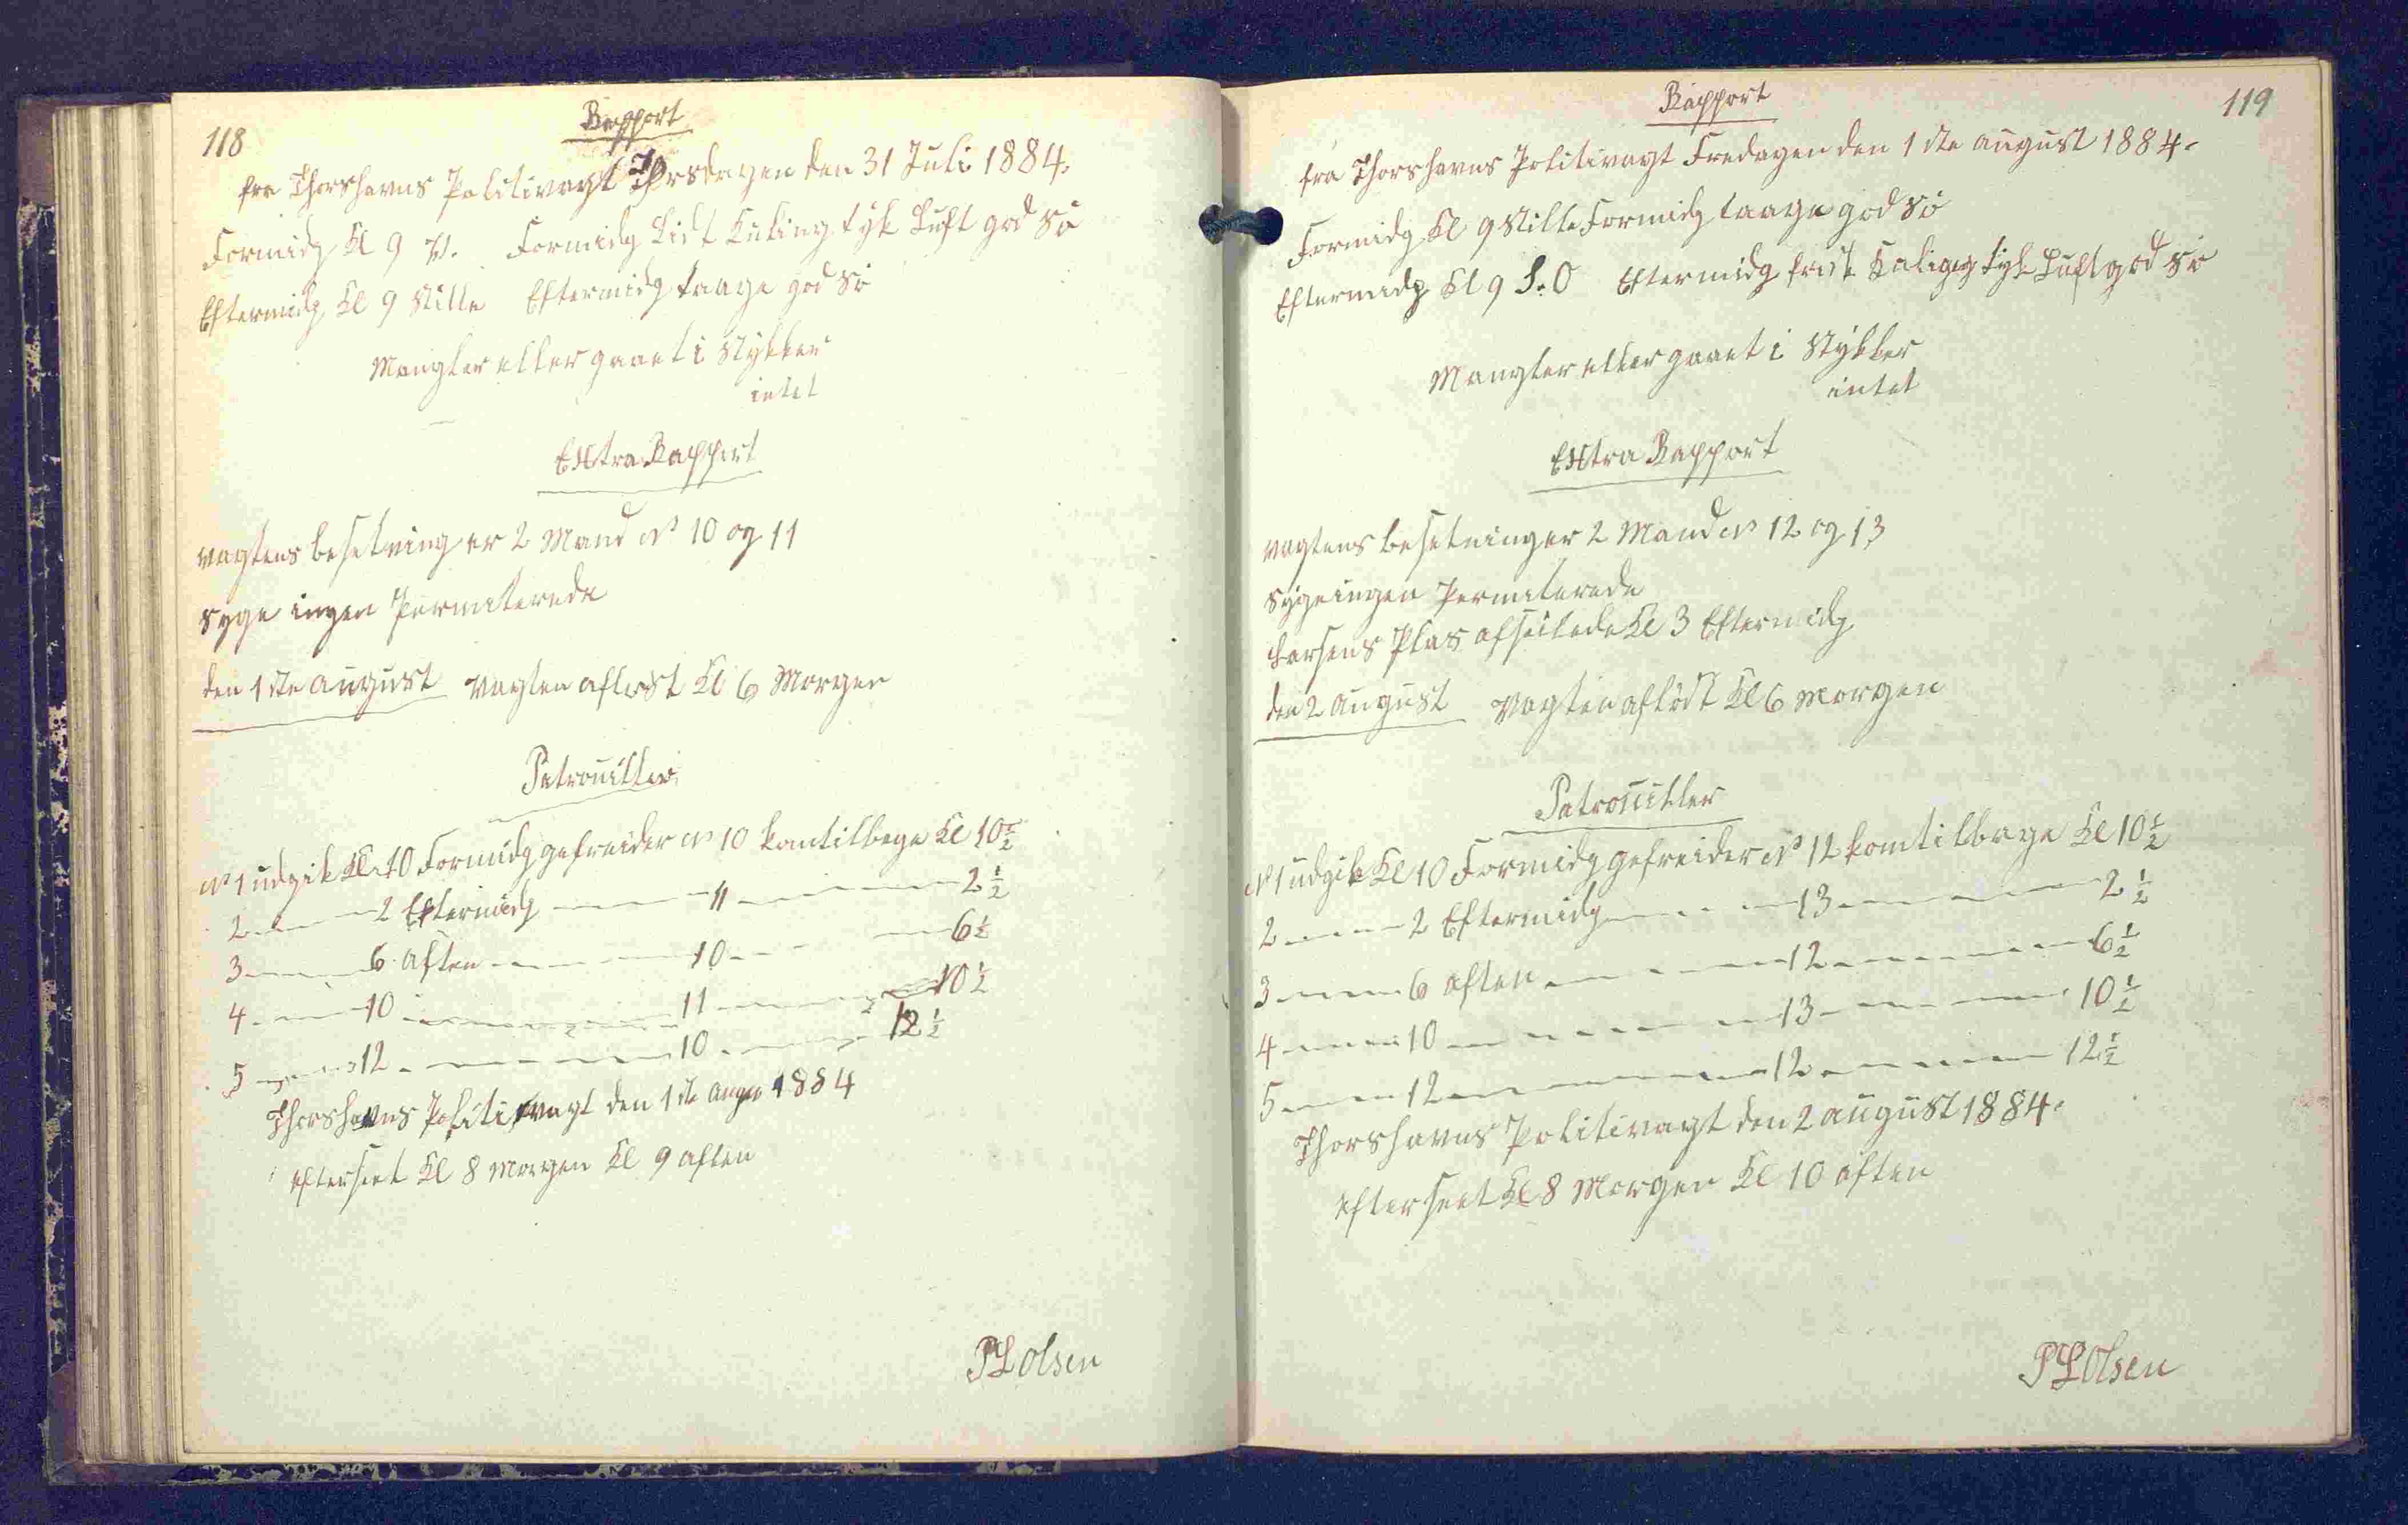 118
Rapport
fra Thorshavns Politivagt Thorsdagen den 31 Juli 1884.
Formidg Kl 9 V. Formidg Lidt Kuling tyk Luft god Sø
Eftermidg Kl 9 Stille Eftermidg taage god Sø
Mangler eller gaaet i Stykker
intet
Extra Rapport
Vagtens besetning er 2 Mand No 10 og 11
Syge ingen Permiterede
den 1ste august Vagten afløst Kl 6 Morgen
Patrouiller
No 1 udgik Kl 10 Formidg gefreider No 10 kom tilbage Kl 10½
2 — 2 Eftermidg — 11 — 2½
3 — 6 aften — 10 — 6½
4 — 10 — 11 — 10½
5 — 12 — 10 — 12½
Thorshavns Politivagt den 1ste Augu 1884
efterseet Kl 8 Morgen Kl 9 aften
PL Olsen
119
Rapport
fra Thorshavns Politivagt Fredagen den 1ste august 1884.
Formidg Kl 9 Stille Formidg taage god Sø
Eftermidg Kl 9 S.O Eftermidg frisk Kuling tyk Luft god Sø
Mangler eller gaaet i Stykker
intet
Extra Rapport
Vagtens besetning er 2 Mand No 12 og 13
Syge ingen Permiterede
Larsens Plas afseilede Kl 3 Eftermidg
den 2 august Vagten afløst Kl 6 Morgen
Patrouiller
No 1 udgik Kl 10 Formidg gefreider No 12 kom tilbage Kl 10½
2 — 2 Eftermidg — 13 — 2½
3 — 6 aften — 12 — 6½
4 — 10 — 13 — 10½
5 — 12 — 12 — 12½
Thorshavns Politivagt den 2 august 1884.
efterseet Kl 8 Morgen Kl 10 aften
PL Olsen